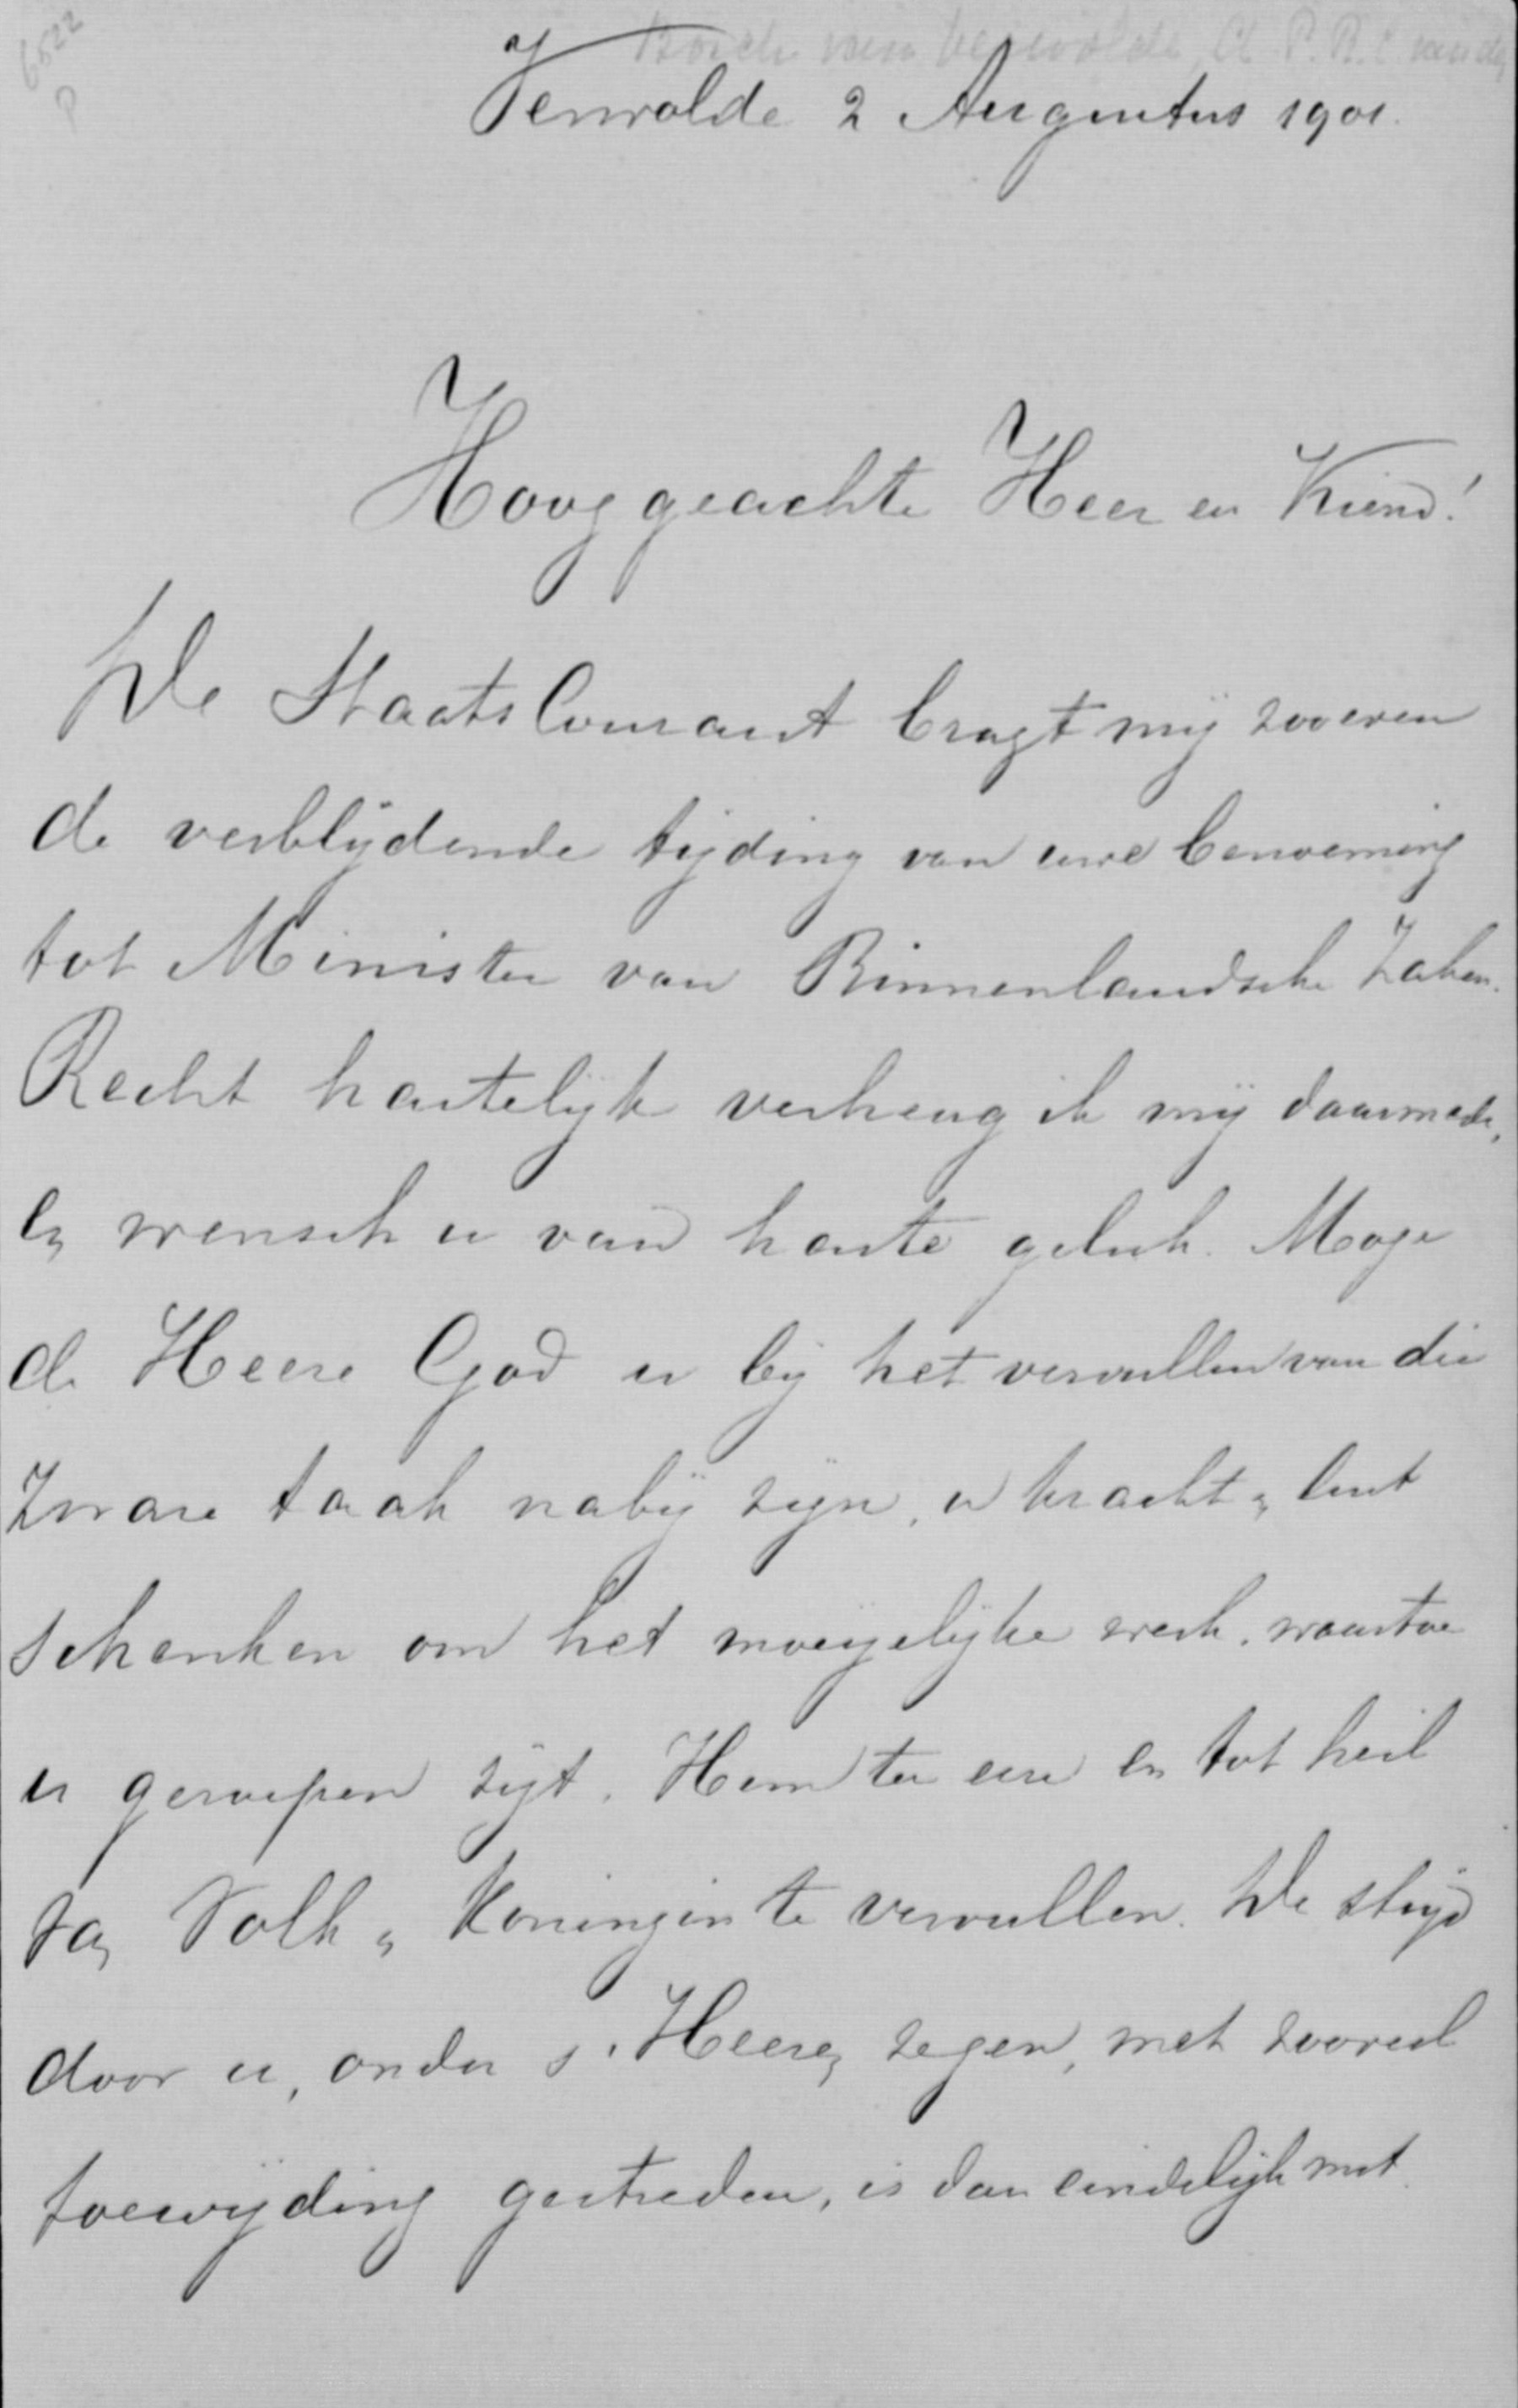 6522
P
Borch van Verwolde, A. P. R. C. van der
Verwolde 2 Augustus 1901.
Hooggeachte Heer en Vriend!
De StaatsCourant bragt mij zooeven
de verblijdende tijding van uwe benoeming
tot Minister van Binnenlandsche Zaken.
Recht hartelijk verheug ik mij daarmede,
en wensch u van harte geluk. Moge
de Heere God u bij het vervullen van die
Zware taak nabij zijn, u kracht en lust
schenken om het moeijelijke werk, waartoe
u geroepen zijt, Hem ter eere en tot heil
van Volk en Koningin te vervullen. De strijd
door u, onder s' Heeren zegen, met zooveel
toewijding gestreden, is dan eindelijk met